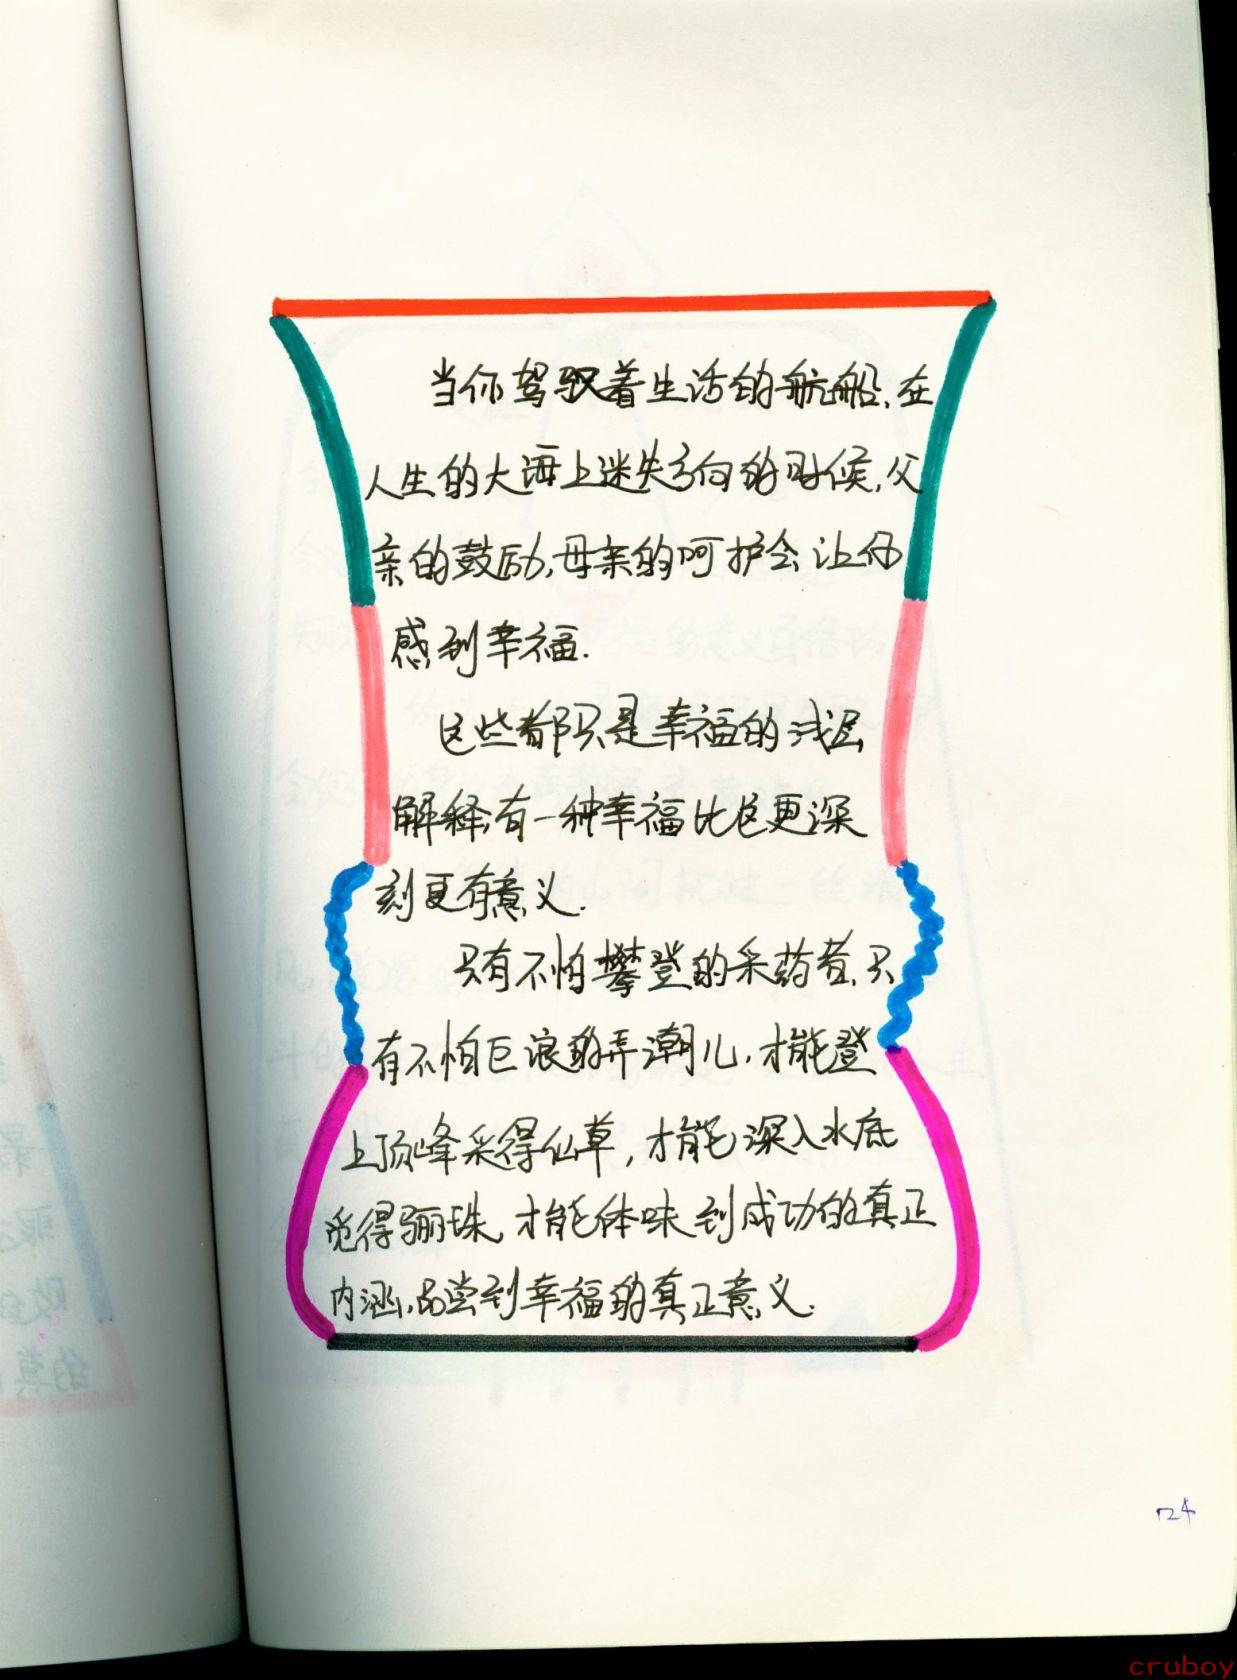 当你驾驭着生活的航船,在
人生的大海上迷失方向的时候,父
亲的鼓励,母亲的呵护会让你
感到幸福.
这些都只是幸福的浅层
解释,有一种幸福比它更深
刻更有意义.
只有不怕攀登的采药者,只
有不怕巨浪的弄潮儿,才能登
上顶峰采得仙草,才能深入水底
觅得骊珠,才能体味到成功的真正
内涵,品尝到幸福的真正意义.
124
cruboy